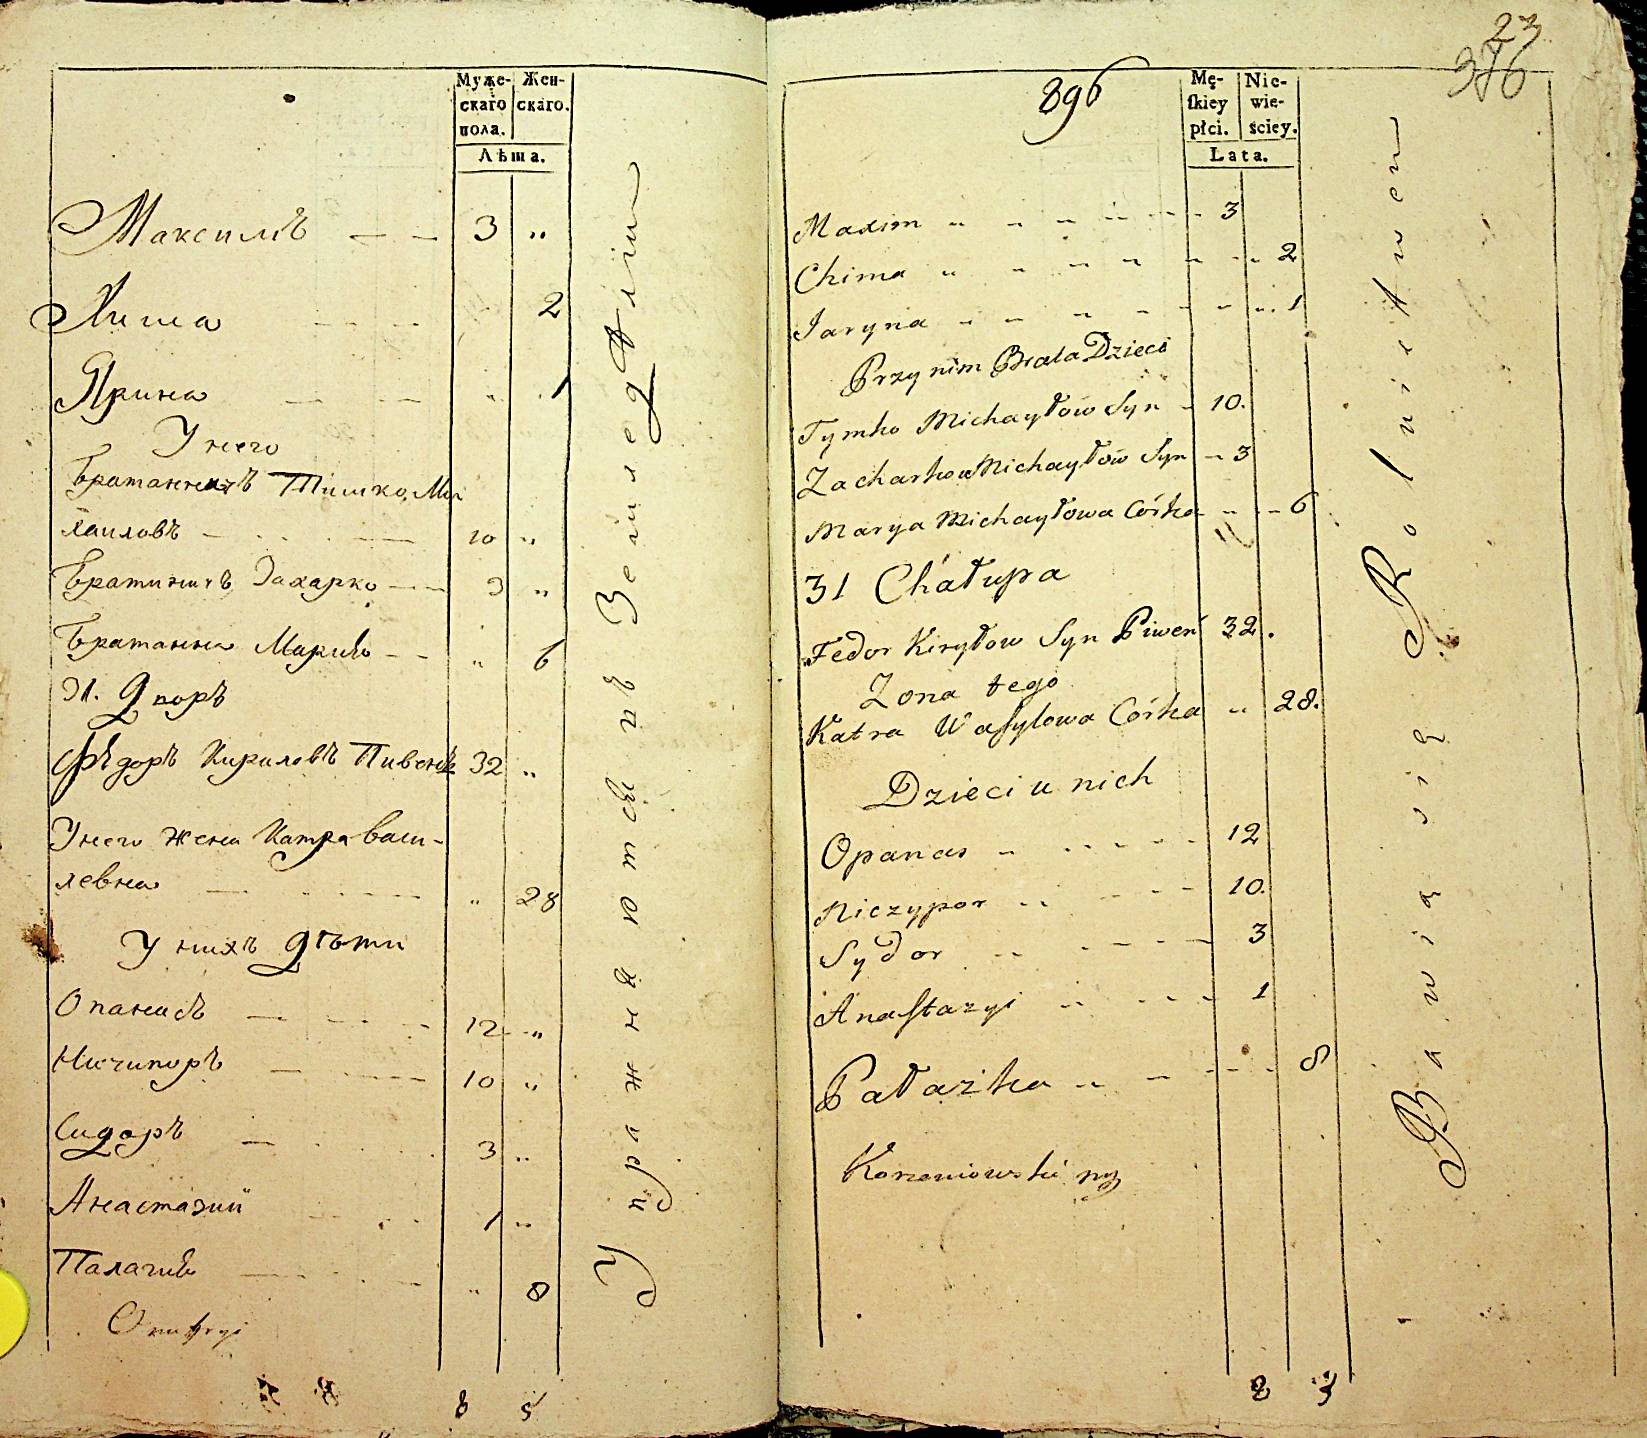 Муже-
скаго
пола.
Жен-
скаго.
Лѣта.
Максимъ 3 „
Хима 2
Ярина „ 1
У него
Братаничъ Тимко Ми-
хайловъ 10 „
Братаничъ Захарко 3 „
Братанна Марья „ 6
31. Дворъ
Ѳедоръ Кириловъ Пивень 32 „
У него жена Катра Васи-
левна „ 28
У нихъ дѣти
Опанасъ 12 „
Ничипоръ 10 „
Сидоръ 3 „
Анастазий 1 „
Палагия „ 8
Onufryi
8 5
Упражняются въ Земледѣлии
23
376
896
Mę-
skiey
płci.
Nie-
wie-
ściey.
Lata.
Maxim 3
Chima 2
Jaryna 1
Przy nim Brata Dzieci
Tymko Michayłow Syn 10.
Zacharko Michayłow Syn 3
Marya Michayłowa Córka 6
31 Chałupa
Fedor Kiryłow Syn Piweń 32.
Zona tego
Katra Wasylowa Córka „ 28.
Dzieci u nich
Opanas 12
Niczypor 10.
Sydor 3
Anastazyi 1
Pałażka 8
Korzeniowski
8 5
Bawią się Rolnictwem